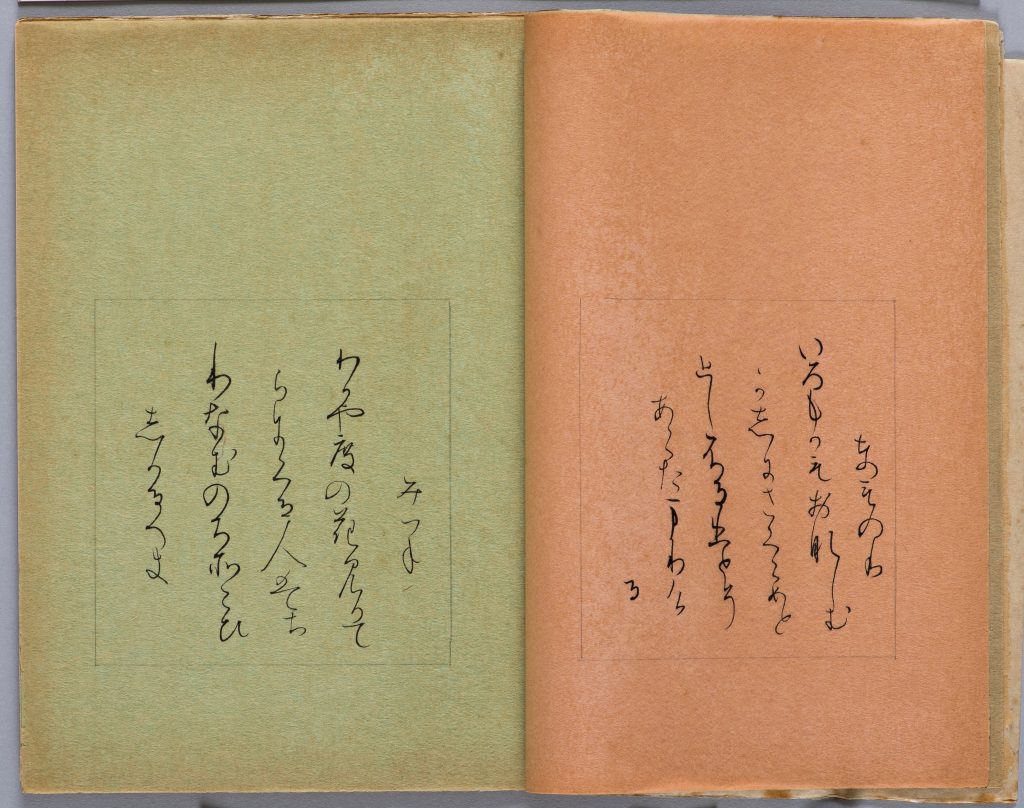 とものり
いろもかもおなしむ
かしにさくらめと
としふるひとそ
あらたまりけ
る
みつね
わかやとの花見かて
らにくる人はち
りなむのちそこひ
しかるへき